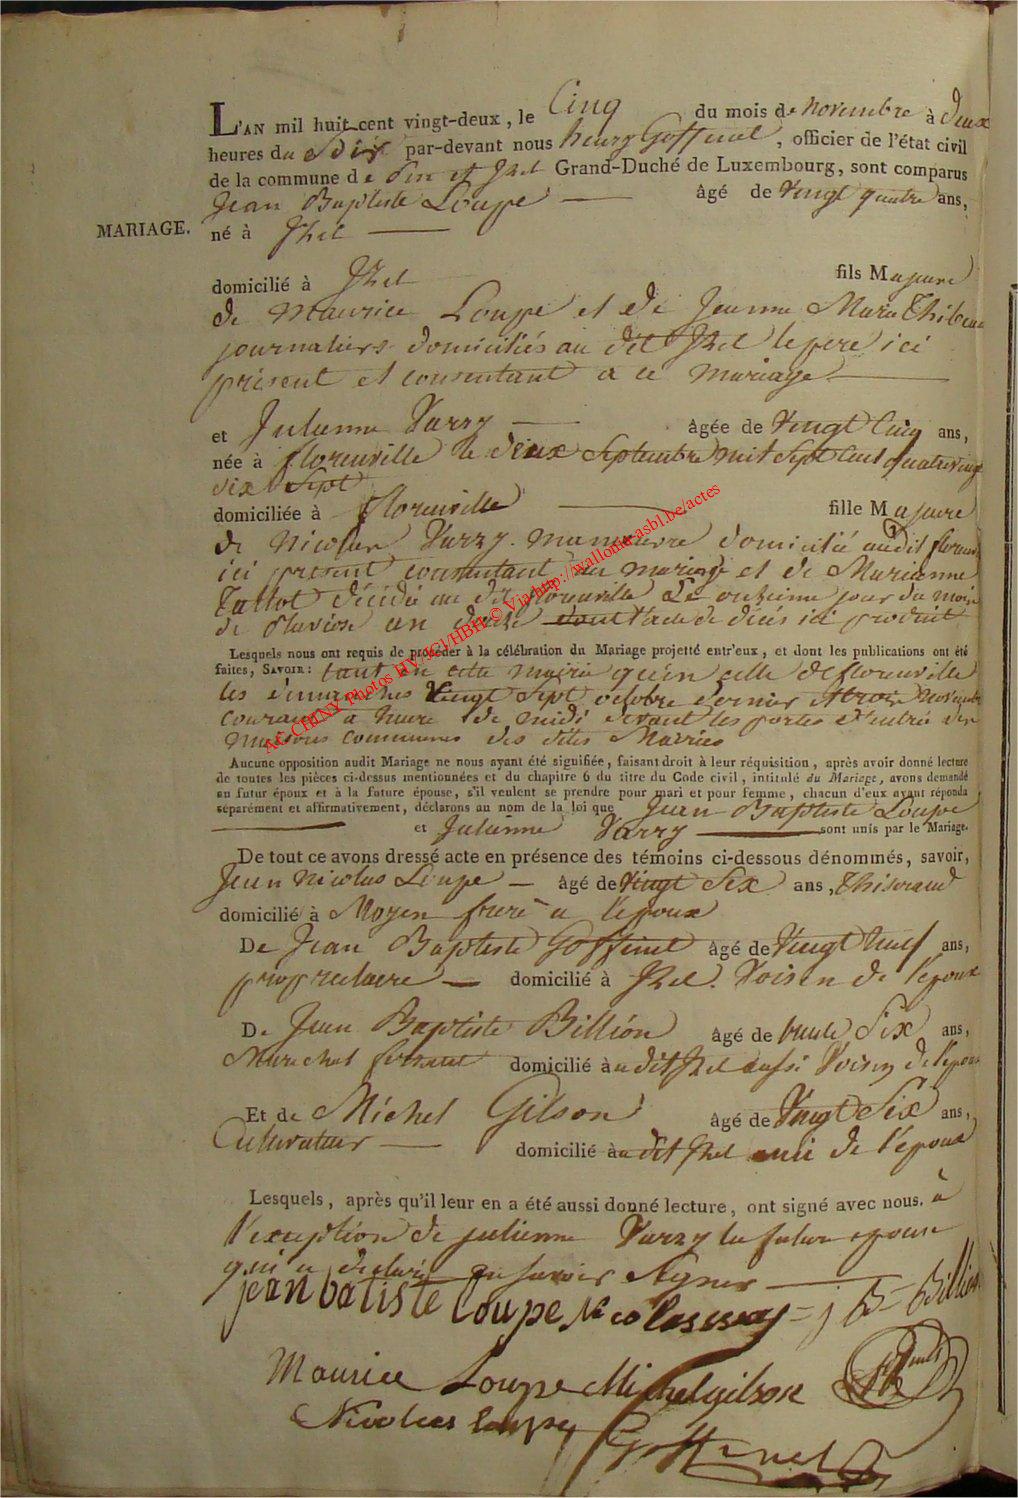 L'AN mil huit cent vingt-deux, le Cinq du mois de Novembre à deux
heures du Soir par-devant nous henry Goffinet, officier de l'état civil
de la commune de Pin et Izel Grand-Duché de Luxembourg, sont comparus
Jean Baptiste Loupe âgé de Vingt quatre ans,
MARIAGE. né à Izel
domicilié à Izel fils Majeure
de Maurice Loupe et de Jeanne Marie Thibeau
journaliers domiciliés au dit Izel le pere ici
présent et consentant a ce mariage
et Julienne Varry âgée de Vingt Cinq ans,
née à florenville le deux Septembre mil Sept Cent quatre vingt
dix Sept
domiciliée à florenville fille Majeure
de Nicolas Varry manœuvre domicilié audit florenville
ici present consentant au mariage et de Marianne
Tallot décédée au dit florenville Le onzieme jour du mois
de Pluviose an douze dont l'acte de décés ici produit
Lesquels nous ont requis de procéder à la célébration du Mariage projetté entr'eux, et dont les publications ont été
faites, SAVOIR: tant en cette mairie qu'en celle de florenville
les dimanches Vingt Sept octobre dernier et trois Novembre
courant a heure de midi devant les portes d'entrée des
maisons communes des dites Mairies
Aucune opposition audit Mariage ne nous ayant été signifiée, faisant droit à leur réquisition, après avoir donné lecture
de toutes les pièces ci-dessus mentionnées et du chapitre 6 du titre du Code civil, intitulé du Mariage, avons demandé
au futur époux et à la future épouse, s'il veulent se prendre pour mari et pour femme, chacun d'eux ayant répondu
séparément et affirmativement, déclarons au nom de la loi que Jean Baptiste Loupe
et Julienne Varry sont unis par le Mariage.
De tout ce avons dressé acte en présence des témoins ci-dessous dénommés, savoir,
Jean Nicolas Loupe âgé de Vingt Six ans, thisserand
domicilié à Moyen frere a l'epoux
De Jean Baptiste Goffinet âgé de Vingt neuf ans,
propriétaire domicilié à Izel. Voisin de l'epoux
De Jean Baptiste Billion âgé de trente Six ans,
Marechal ferrant domicilié audit Izel aussi Voisin de l'epoux
Et de Michel Gilson âgé de Vingt Six ans,
Cultivateur domicilié audit Izel ami de l'epoux
Lesquels, après qu'il leur en a été aussi donné lecture, ont signé avec nous. à
l'exception de julienne Varry la future epouse
qui a declaré ne savoir Signer
jean batiste Loupe Nicolas = j B = Billion
Maurice Loupe Michel gilson
Nicolas loupe Goffinet
AC CHINY Photos HV/JGI/HBH © Via http://wallonica.asbl.be/actes